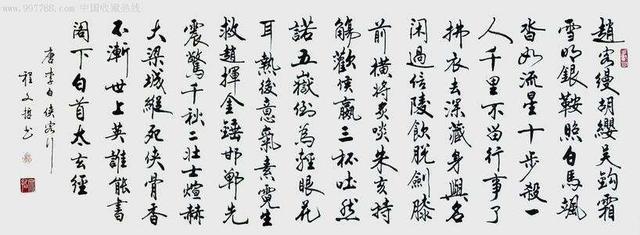 www.997788.com 中国收藏热线
趙客縵胡纓吳鉤霜
雪明銀鞍照白馬颯
沓如流星十步殺一
人千里不留行事了
拂衣去深藏身與名
閑過信陵飲脫劍膝
前橫將炙啖朱亥持
觴勸侯嬴三杯吐然
諾五嶽倒為輕眼花
耳熱後意氣素霓生
救趙揮金錘邯鄲先
震驚千秋二壯士煊赫
大梁城縱死俠骨香
不慚世上英誰能書
閣下白首太玄經
唐李白俠客行
程文書